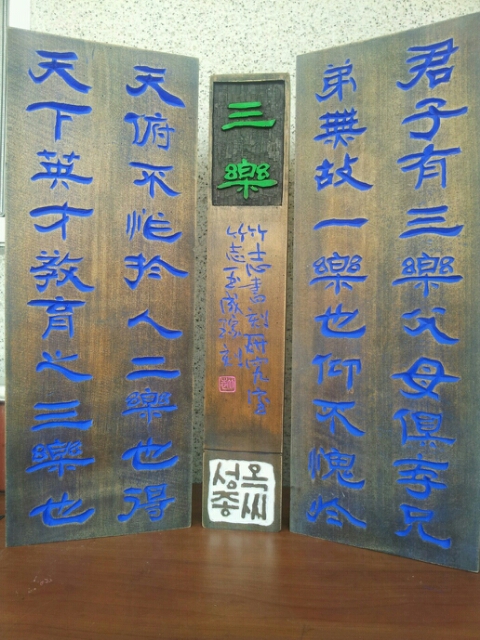 君子有三樂父母俱存兄
弟無故一樂也仰不愧於
三樂
竹志書刻硏究室
竹志玉成
옥씨
성종
天俯不怍於人二樂也得
天下英才敎育之三樂也